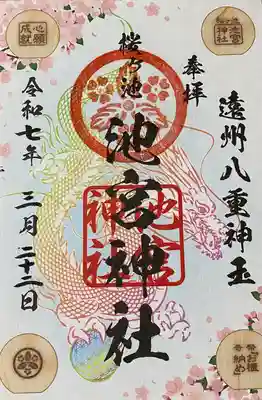 奉拝
遠州八重神玉
桜が池
池宮神社
池宮
神社
令和七年
三月二十二日
心願
成就
池宮
神社
お櫃
納め